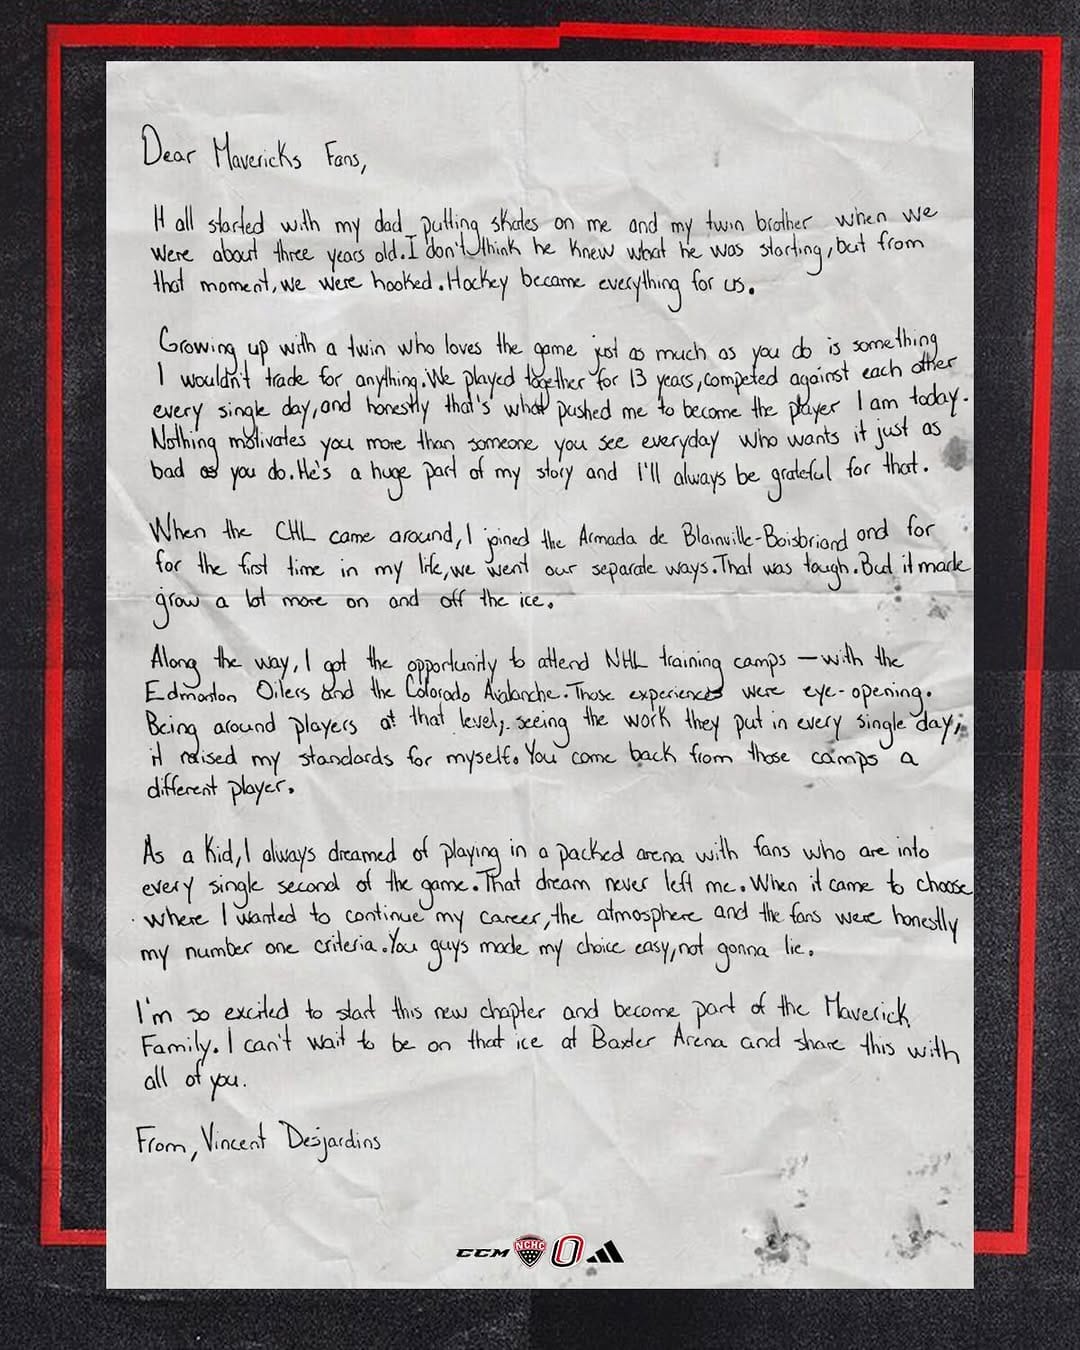 Dear Mavericks Fans,
It all started with my dad putting skates on me and my twin brother when we
were about three years old. I don't think he knew what he was starting, but from
that moment, we were hooked. Hockey became everything for us.
Growing up with a twin who loves the game just as much as you do is something
I wouldn't trade for anything. We played together for 13 years, competed against each other
every single day, and honestly that's what pushed me to become the player I am today.
Nothing motivates you more than someone you see everyday who wants it just as
bad as you do. He's a huge part of my story and I'll always be grateful for that.
When the CHL came around, I joined the Armada de Blainville-Boisbriand and for
for the first time in my life, we went our separate ways. That was tough. But it made
grow a lot more on and off the ice.
Along the way, I got the opportunity to attend NHL training camps — with the
Edmonton Oilers and the Colorado Avalanche. Those experiences were eye-opening.
Being around players at that level, seeing the work they put in every single day,
it raised my standards for myself. You come back from those camps a
different player.
As a Kid, I always dreamed of playing in a packed arena with fans who are into
every single second of the game. That dream never left me. When it came to choose
where I wanted to continue my career, the atmosphere and the fans were honestly
my number one criteria. You guys made my choice easy, not gonna lie.
I'm so excited to start this new chapter and become part of the Maverick
Family. I can't wait to be on that ice at Baxter Arena and share this with
all of you.
From, Vincent Desjardins
CCM NCHC O